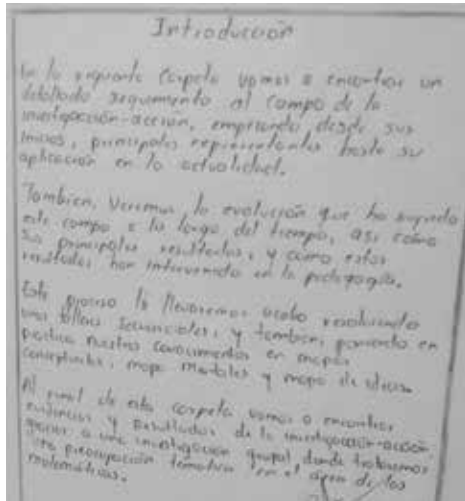 Introducción
En la siguiente Carpeta vamos a encontrar un
detallado seguimiento al campo de la
investigación-acción, empezando desde sus
inicios, principales representantes hasta su
aplicación en la actualidad.
Tambien, Veremos la evolución que ha sufrido
este campo a lo largo del tiempo, así como
sus principales resultados, y cómo estos
resultados han intervenido en la pedagogía.
Este proceso lo llevaremos acabo resolviendo
unos talleres secuenciales, y tambien, poniendo en
practica nuestros conocimientos en mapas
conceptuales, mapa mentales y mapa de ideas.
Al final de esta carpeta vamos a encontrar
evidencias y resultados de la investigación-acción
gracias a una investigación grupal donde trabajaremos
una preocupación temática en el área de las
matemáticas.